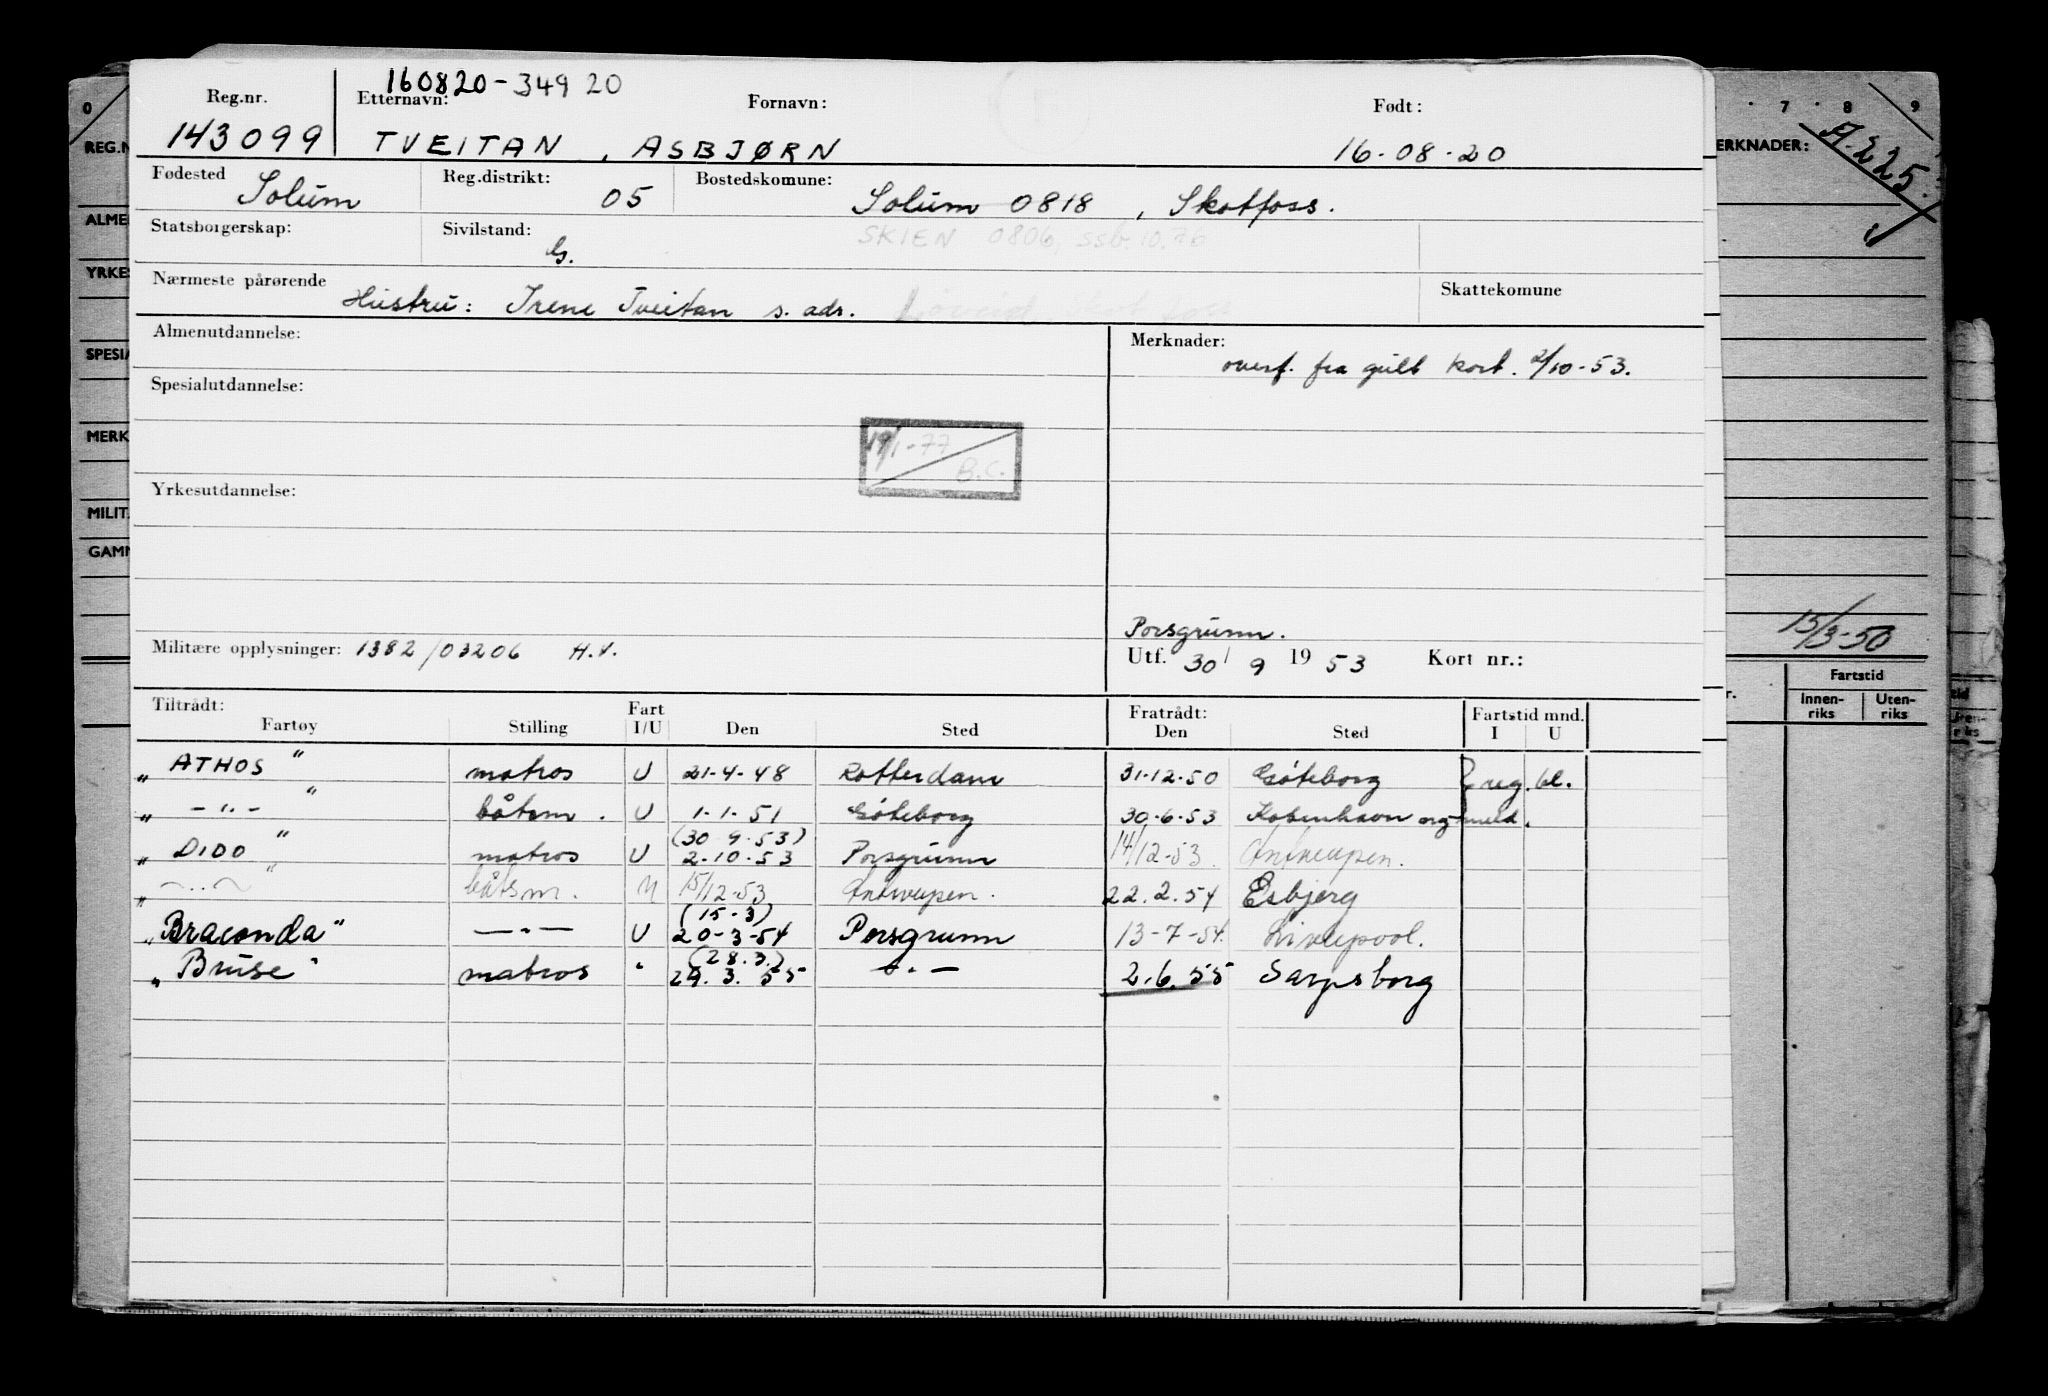 160820-34920
Reg.nr. Etternavn: Fornavn: Født:
143099 TVEITAN, ASBJØRN 16-08-20
Fødested Solum Reg.distrikt: 05 Bostedskomune: Solum 0818, Skotfoss.
Statsborgerskap: Sivilstand: G. SKIEN 0806, ssb. 10.76
Nærmeste pårørende Hustru: Irene Tveitan s. adr. Skattekomune
Almenutdannelse: Merknader: overf. fra gult kort. 2/10-53.
Spesialutdannelse:
19/1-77
B.C.
Yrkesutdannelse:
Porsgrunn.
Militære opplysninger: 1382/03206 H.V. Utf. 30/9 1953 Kort nr.:
Tiltrådt: Fart Fratrådt: Fartstid mnd.
Fartøy Stilling I/U Den Sted Den Sted I U
"ATHOS" matros U 21-4-48 Rotterdam 31-12-50 Göteborg reg. bl.
" -"- " båtsm. U 1-1-51 Göteborg 30-6-53 København og meld.
(30-9-53)
"DIDO" matros U 2-10-53 Porsgrunn 14/12-53 Antwerpen.
" -"- " båtsm. U 15/12-53 Antwerpen. 22.2.54 Esbjerg
(15-3)
"Braconda" -"- U 20-3-54 Porsgrunn 13-7-54. Liverpool.
(28.3.)
"Bruse" matros " 29.3.55 -"- 2.6.55 Sarpsborg
0
REG.N
ALME
YRKES
SPESIA
MERK
MILIT.
GAMM
7 8 9
ERKNADER: A.225.
15/3-50
r. Fartstid
Innen-riks Uten-riks